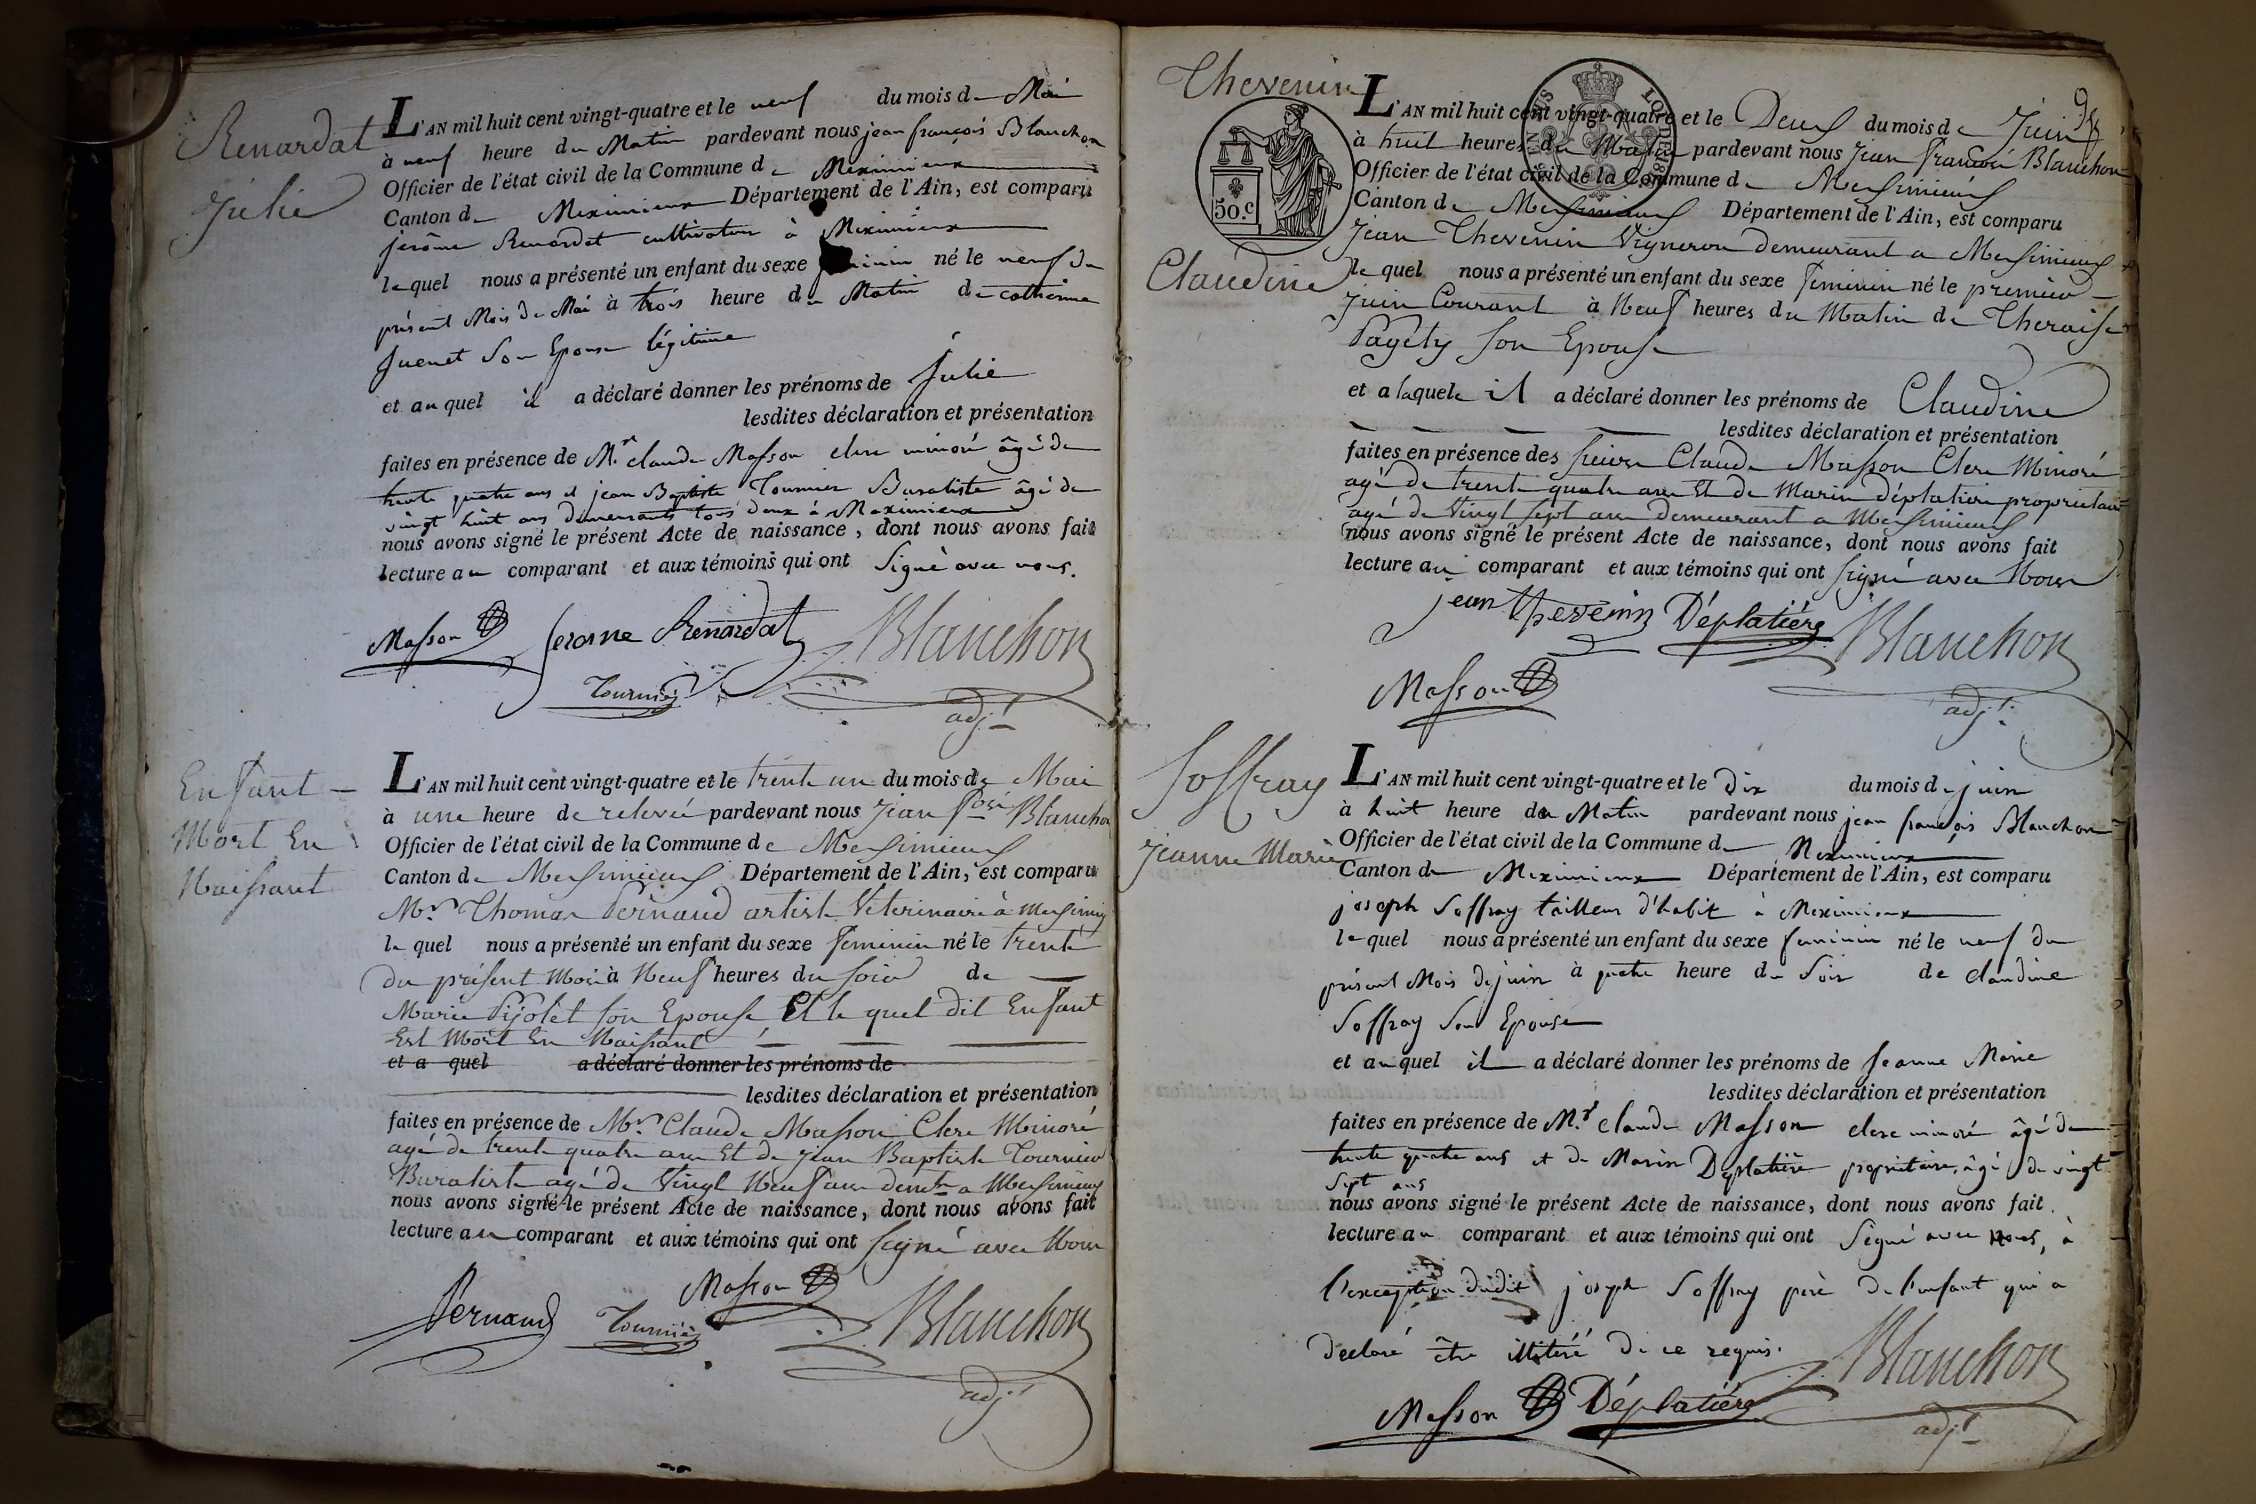 Renardat
Julie
L'AN mil huit cent vingt-quatre et le neuf du mois de Mai
à neuf heure du Matin pardevant nous jean françois Blanchon
Officier de l'état civil de la Commune de Meximieux
Canton de Meximieux Département de l'Ain, est comparu
jerôme Renardat cultivateur à Meximieux
lequel nous a présenté un enfant du sexe feminin né le neuf du
présent Mois de Mai à trois heure du Matin de catherine
Juenet Son Epouse légitime
et auquel il a déclaré donner les prénoms de Julie
lesdites déclaration et présentation
faites en présence de Mr. claude Masson clerc minoré âgé de
trente quatre ans et jean Baptiste Tournier Buraliste âgé de
vingt huit ans demeurants tous deux à Meximieux
nous avons signé le présent Acte de naissance, dont nous avons fait
lecture au comparant et aux témoins qui ont Signé avec nous.
Masson Jerome Renardat Blanchon
Tournier adjt
Enfant
Mort En
Naissant
L'AN mil huit cent vingt-quatre et le trente un du mois de Mai
à une heure de relevée pardevant nous Jean fcois Blanchon
Officier de l'état civil de la Commune de Messimieux
Canton de Messimieux Département de l'Ain, est comparu
Mr. Thomas Pernaud artiste Véterinaire à
le quel nous a présenté un enfant du sexe feminin né le trente
du présent Mois à Neuf heures du soir de
Marie Pijolet son Epouse Et le quel dit Enfant
Est Mort En Naissant
et a quel a déclaré donner les prénoms de
lesdites déclaration et présentation
faites en présence de Mr. Claude Masson Clerc Minoré
agé de trente quatre ans Et de Jean Baptiste Tournier
Buraliste agé de Vingt Neuf ans demt a Messimieux
nous avons signé le présent Acte de naissance, dont nous avons fait
lecture au comparant et aux témoins qui ont signé avec Nous
Pernaud Tournier Masson Blanchon
adjt
Thevenin
Claudine
50.c
L'AN mil huit cent vingt-quatre et le Deux du mois de Juin
à huit heures du Matin pardevant nous Jean francois Blanchon
Officier de l'état civil de la Commune de Messimieux
Canton de Messimieux Département de l'Ain, est comparu
Jean Thevenin Vigneron demeurant a Messimieux
le quel nous a présenté un enfant du sexe feminin né le premier
Juin Courant à Neuf heures du Matin de Theraise
Pagety son Epouse
et a laquele il a déclaré donner les prénoms de Claudine
lesdites déclaration et présentation
faites en présence des sieurs Claude Masson Clerc Minoré
agé de trente quatre ans Et de Marin Déplatiere proprietaire
agé de Vingt sept ans demeurant a Messimieux
nous avons signé le présent Acte de naissance, dont nous avons fait
lecture au comparant et aux témoins qui ont signé avec Nous
jean thevenin Déplatière Blanchon
Masson adjt
Soffray
Jeanne Marie
L'AN mil huit cent vingt-quatre et le Dix du mois de juin
à huit heure du Matin pardevant nous jean françois Blanchon
Officier de l'état civil de la Commune de Meximieux
Canton de Meximieux Département de l'Ain, est comparu
joseph Soffray tailleur d'habit à Meximieux
lequel nous a présenté un enfant du sexe feminin né le neuf du
présent Mois de juin à quatre heure du Soir de claudine
Soffray Son Epouse
et auquel il a déclaré donner les prénoms de Jeanne Marie
lesdites déclaration et présentation
faites en présence de Mr. claude Masson clerc minoré âgé de
trente quatre ans et de Marin Deplatière proprietaire, âgé de vingt
Sept ans
nous avons signé le présent Acte de naissance, dont nous avons fait
lecture au comparant et aux témoins qui ont Signé avec nous, à
l'exception dudit joseph Soffray père de l'enfant qui a
déclaré être illitéré de ce requis.
Masson Déplatière Blanchon
adjt